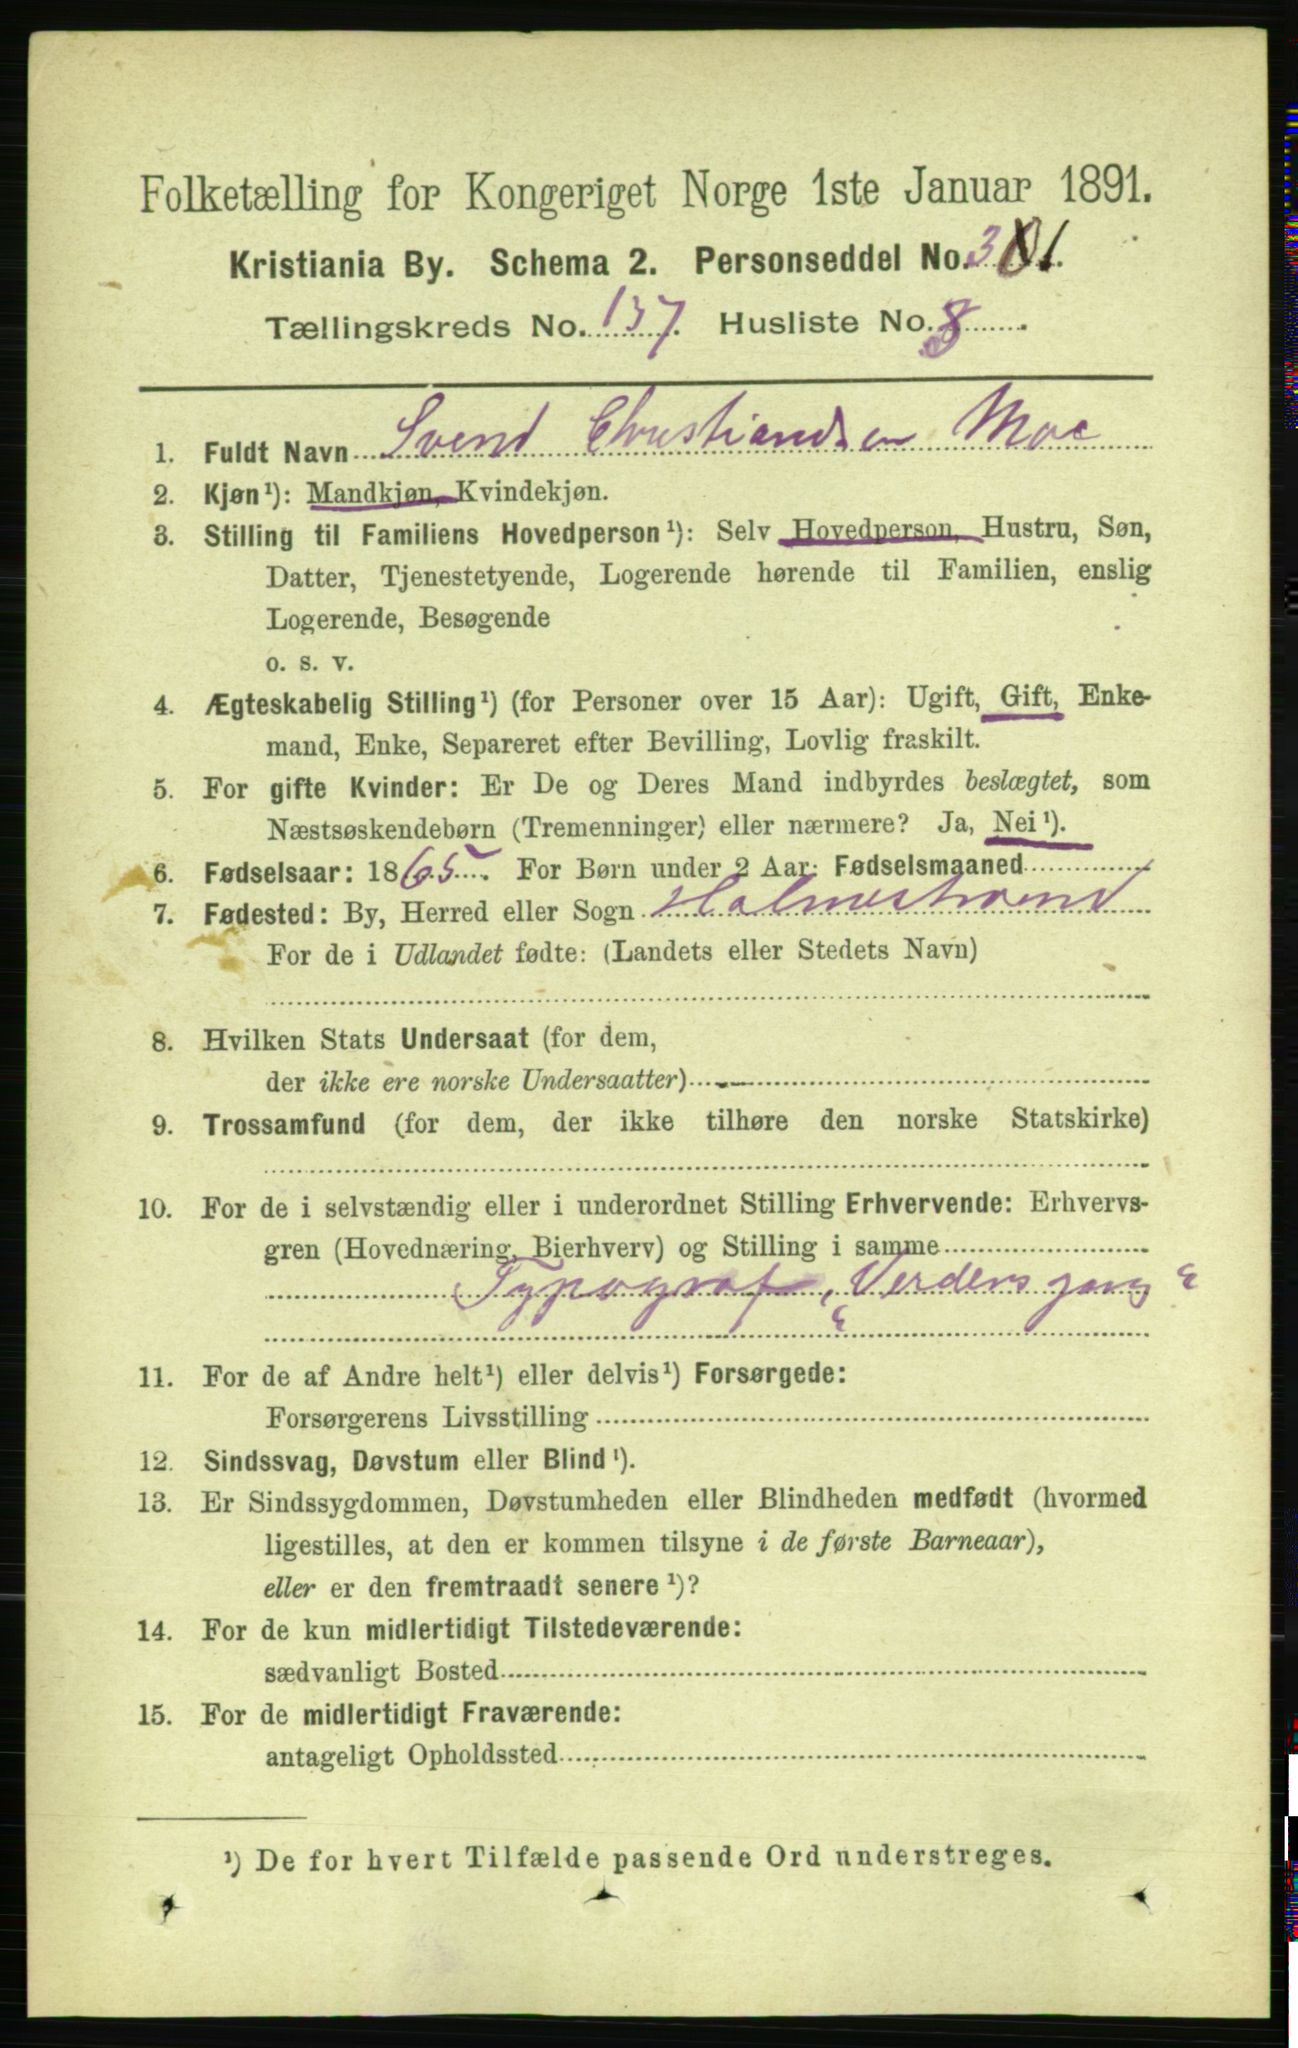 Folketælling for Kongeriget Norge 1ste Januar 1891.
Kristiania By. Schema 2. Personseddel No. 301.
Tællingskreds No. 137. Husliste No. 8.
1. Fuldt Navn Svend Christiandsen Moe
2. Kjøn¹): Mandkjøn, Kvindekjøn.
3. Stilling til Familiens Hovedperson¹): Selv Hovedperson, Hustru, Søn,
Datter, Tjenestetyende, Logerende hørende til Familien, enslig
Logerende, Besøgende
o. s. v.
4. Ægteskabelig Stilling¹) (for Personer over 15 Aar): Ugift, Gift, Enke-
mand, Enke, Separeret efter Bevilling, Lovlig fraskilt.
5. For gifte Kvinder: Er De og Deres Mand indbyrdes beslægtet, som
Næstsøskendebørn (Tremenninger) eller nærmere? Ja, Nei¹).
6. Fødselsaar: 1865. For Børn under 2 Aar: Fødselsmaaned
7. Fødested: By, Herred eller Sogn Holmestrand
For de i Udlandet fødte: (Landets eller Stedets Navn)
8. Hvilken Stats Undersaat (for dem,
der ikke ere norske Undersaatter)
9. Trossamfund (for dem, der ikke tilhøre den norske Statskirke)
10. For de i selvstændig eller i underordnet Stilling Erhvervende: Erhvervs-
gren (Hovednæring, Bierhverv) og Stilling i samme
Typograf, "Verdens gang"
11. For de af Andre helt¹) eller delvis¹) Forsørgede:
Forsørgerens Livsstilling
12. Sindssvag, Døvstum eller Blind¹).
13. Er Sindssygdommen, Døvstumheden eller Blindheden medfødt (hvormed
ligestilles, at den er kommen tilsyne i de første Barneaar),
eller er den fremtraadt senere¹)?
14. For de kun midlertidigt Tilstedeværende:
sædvanligt Bosted
15. For de midlertidigt Fraværende:
antageligt Opholdssted
¹) De for hvert Tilfælde passende Ord understreges.